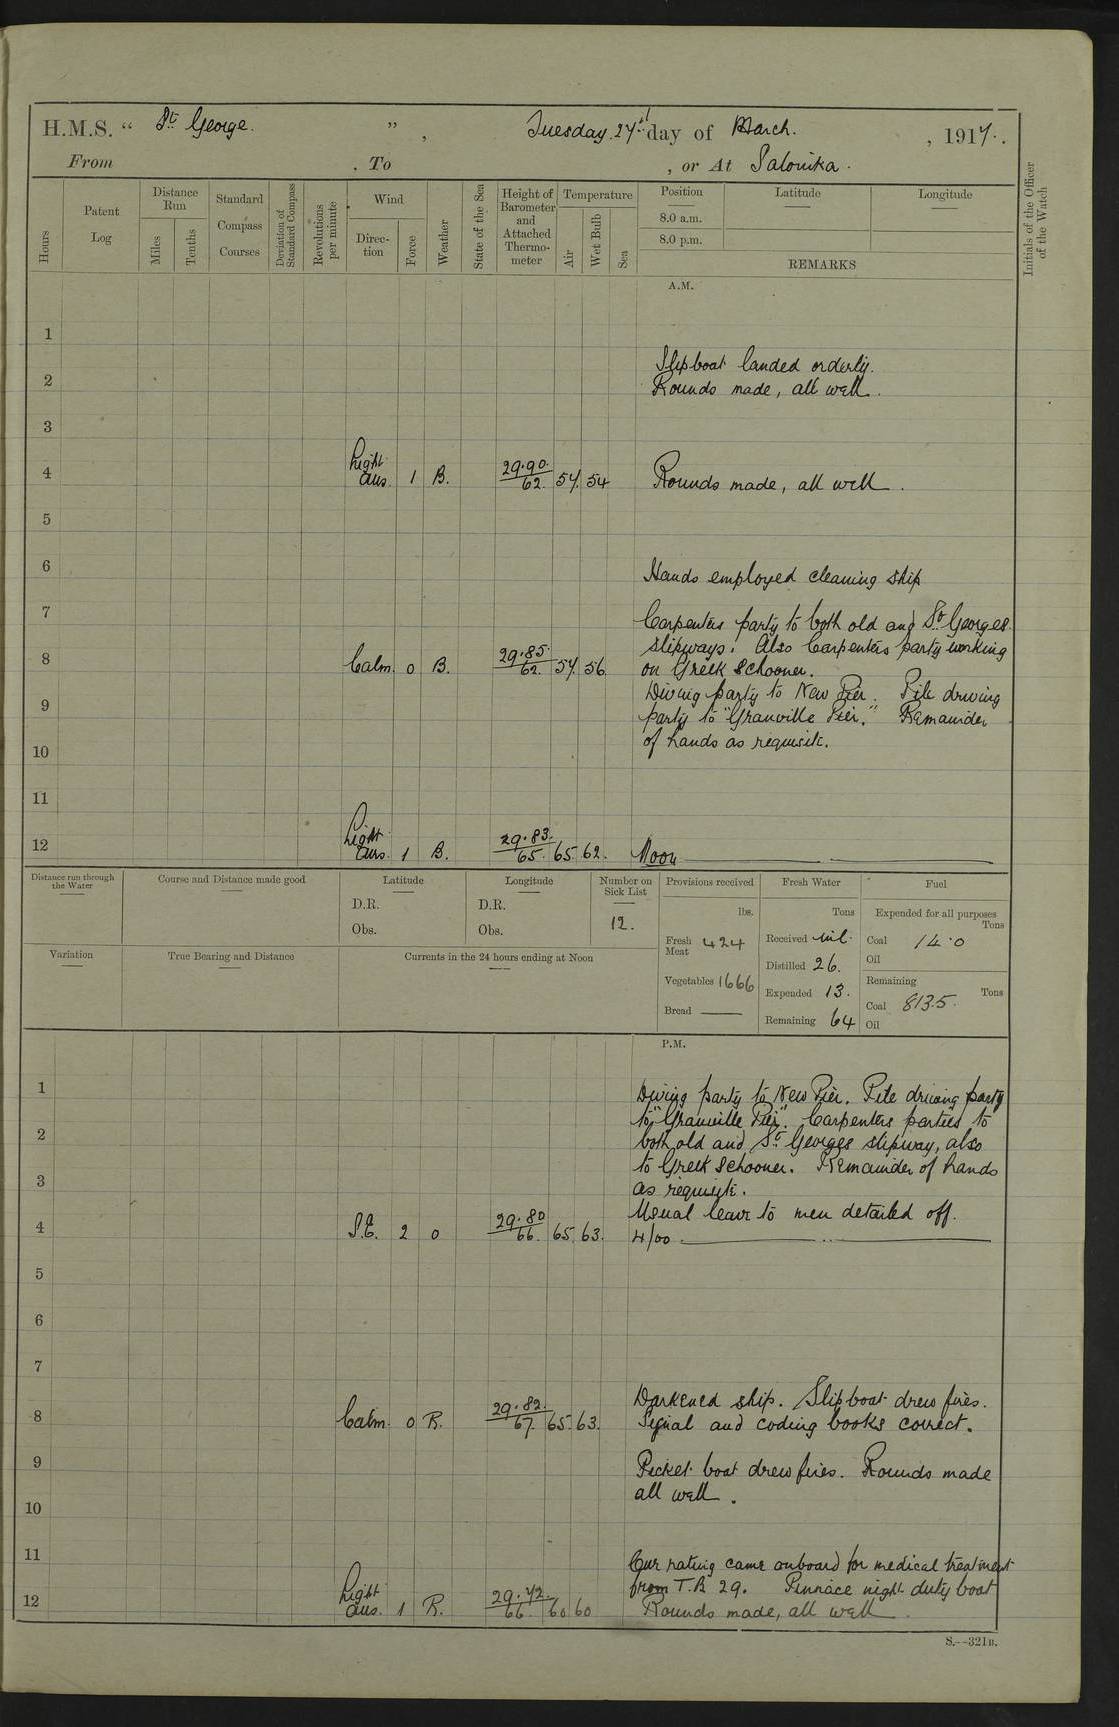 H.M.S. “ St. George. ” , Tuesday 27th day of March. , 1917.
From . To , or At Salonika.
Hours
Patent Log
Distance Run
Miles
Tenths
Standard Compass Courses
Deviation of Standard Compass
Revolutions per minute
Wind
Direction
Force
Weather
State of the Sea
Height of Barometer and Attached Thermometer
Temperature
Air
Wet Bulb
Sea
Position
8.0 a.m.
8.0 p.m.
Latitude
Longitude
REMARKS
Initials of the Officer of the Watch
A.M.
1
Slipboat landed orderly.
2 Rounds made, all well.
3
4 Light airs. 1 B. 29.90. 62. 57. 54 Rounds made, all well.
5
6 Hands employed cleaning ship
7 Carpenters party to both old and St. Georges
slipways. Also Carpenters party working
8 Calm. 0 B. 29.85. 62. 57. 56 on Greek Schooner.
Diving party to New Pier. Pile driving
9 party to "Granville Pier." Remainder
of hands as requisite.
10
11
12 Light airs. 1 B. 29.83. 65. 65. 62. Noon
Distance run through the Water
Course and Distance made good
Latitude
D.R.
Obs.
Longitude
D.R.
Obs.
Number on Sick List
12.
Provisions received
lbs.
Fresh Meat 424
Vegetables 1666
Bread ——
Fresh Water
Tons
Received nil.
Distilled 26.
Expended 13.
Remaining 64
Fuel
Expended for all purposes
Tons
Coal 14.0
Oil
Remaining
Tons
Coal 813.5.
Oil
Variation
True Bearing and Distance
Currents in the 24 hours ending at Noon
P.M.
1 Diving party to New Pier. Pile driving party
to "Granville Pier". Carpenters parties to
2 both old and St. Georges slipway, also
to Greek Schooner. Remainder of hands
3 as requisite.
Usual leave to men detailed off.
4 S.E. 2 0 29.80 66. 65. 63. 4/00
5
6
7
Darkened ship. Slipboat drew fires.
8 Calm. 0 R. 29.82. 67. 65. 63. Signal and coding books correct.
9 Picket boat drew fires. Rounds made
all well.
10
11
One rating came onboard for medical treatment
from T.B 29. Pinnace night duty boat
12 Light airs. 1 R. 29.72. 66. 60 60 Rounds made, all well.
S.—321B.